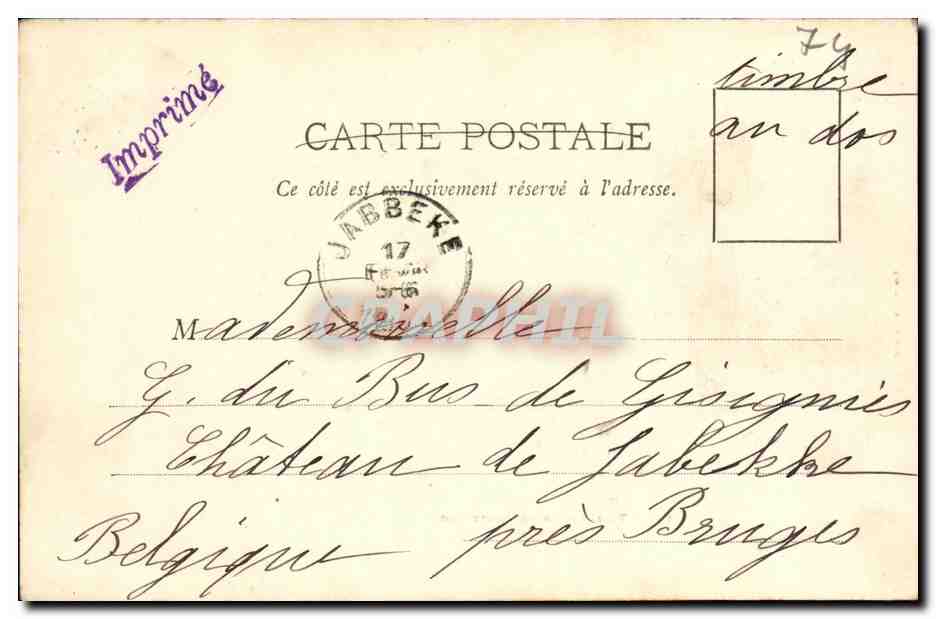 74
timbre
au dos
Imprimé
CARTE POSTALE
Ce côté est exclusivement réservé à l'adresse.
JABBEKE
17
5-6
CPAPHIL
Mademoiselle
G. du Bus de Gisignies
Château de Jabekke
près Bruges
Belgique